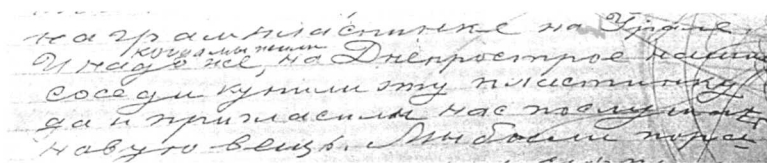 на граммпластинке на Урале.
И надо же, когда мы жили на Днепрострое наши
соседи купили эту пластинку
да и пригласили нас послушать
новую вещь. Мы были пора-